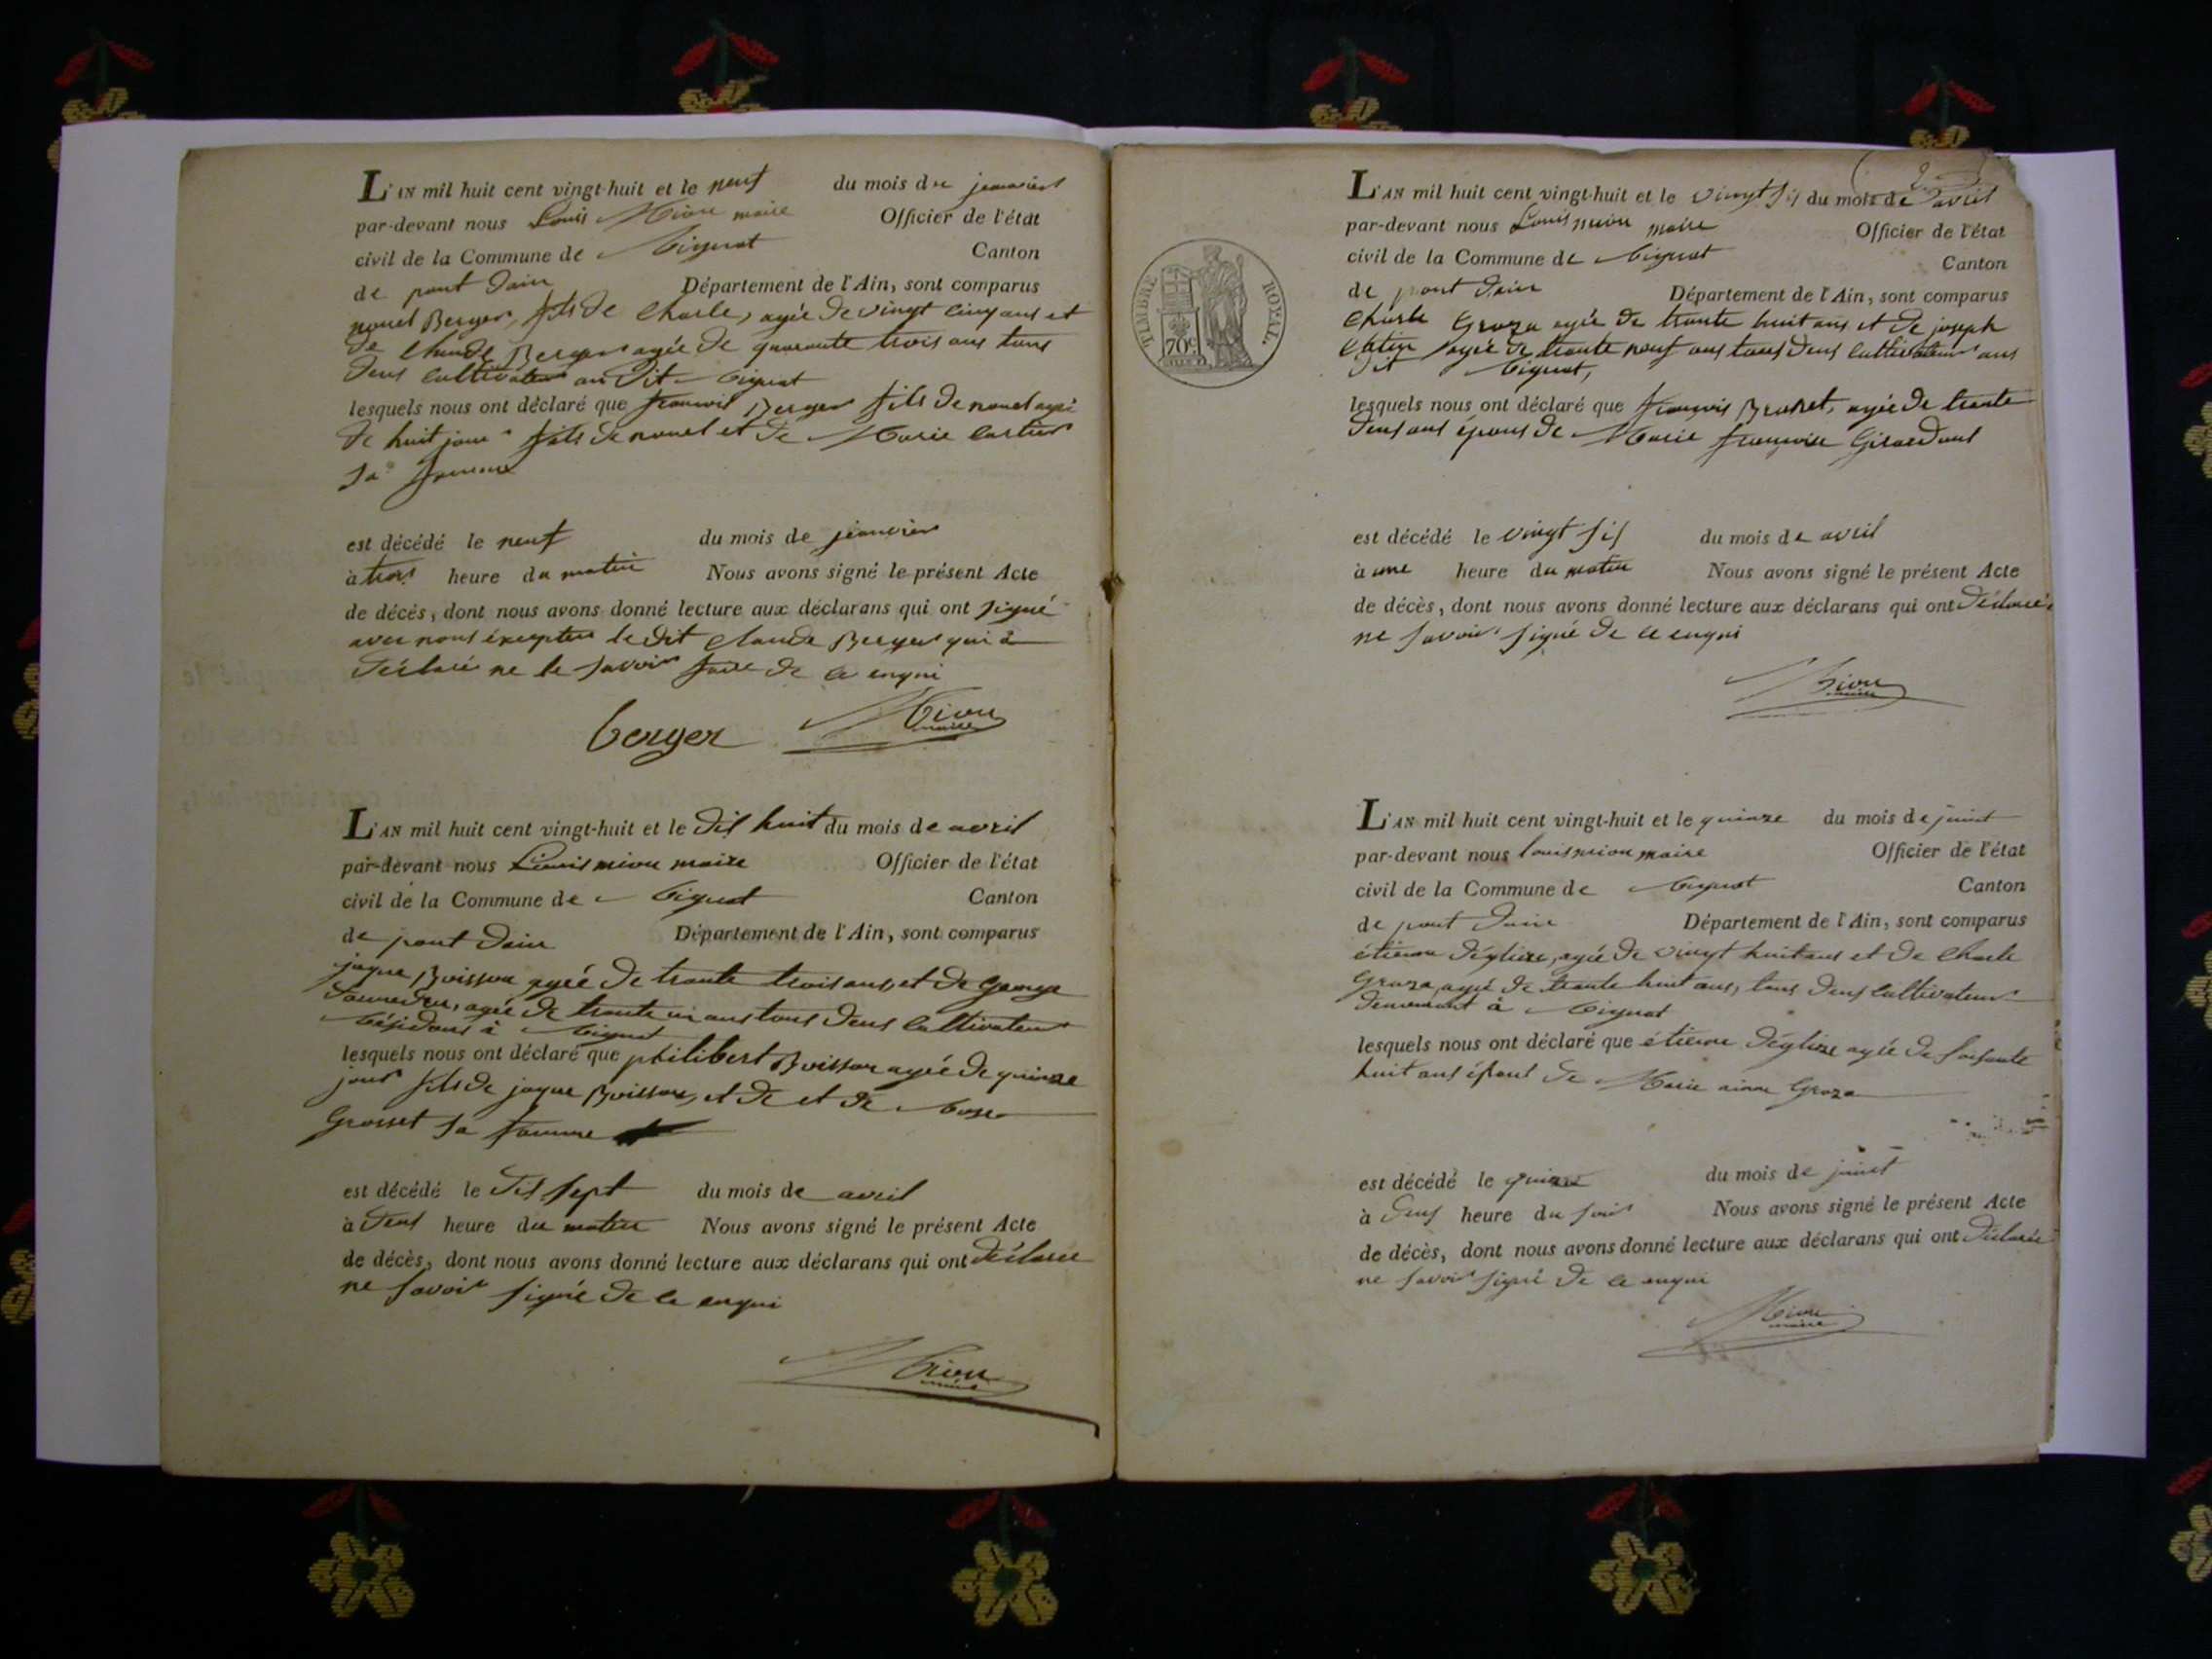 L'AN mil huit cent vingt-huit et le neuf du mois de jeanvier
par-devant nous Louis Mion maire Officier de l'état
civil de la Commune de Rignat Canton
de pont dain Département de l'Ain, sont comparus
nouel Berger, fils de Charle, agée de vingt cinq ans et
de Claude Berger agée de quarante trois ans tous
deus cultivateur au dit Rignat
lesquels nous ont déclaré que francois Berger fils de nouel agée
de huit jour fils de nouel et de Marie Cartier
sa femme
est décédé le neuf du mois de jeanvier
à trois heure du matin Nous avons signé le présent Acte
de décès, dont nous avons donné lecture aux déclarans qui ont signé
avec nous éxeptée le dit Claude Berger qui à
déclaré ne le savoir faire de ce enqui
berger Mion
maire
L'AN mil huit cent vingt-huit et le dis huit du mois de avril
par-devant nous Louis mion maire Officier de l'état
civil de la Commune de Rignat Canton
de pont dain Département de l'Ain, sont comparus
jaque Boisson agée de trante trois ans, et de George
agée de trante un ans tous deus cultivateur
résidans à Rignat
lesquels nous ont déclaré que philibert Boisson agée de quinze
jour fils de jaque Boisson, et de et de Rose
Grosset sa famme
est décédé le dis sept du mois de avril
à deus heure du matin Nous avons signé le présent Acte
de décès, dont nous avons donné lecture aux déclarans qui ont déclaré
ne savoir signé de ce enqui
Mion
maire
2
TIMBRE ROYAL
70c
L'AN mil huit cent vingt-huit et le vingt sis du mois de avril
par-devant nous Louis mion maire Officier de l'état
civil de la Commune de Rignat Canton
de pont dain Département de l'Ain, sont comparus
Charle Groza agée de trante huit ans et de joseph
agée de trante neuf ans tous deus cultivateur aus
dit Rignat,
lesquels nous ont déclaré que françois Brunet, agée de trante
deus ans épous de Marie françoise Girardaut
est décédé le vingt sis du mois de avril
à une heure du matin Nous avons signé le présent Acte
de décès, dont nous avons donné lecture aux déclarans qui ont déclaré
ne savoir signé de ce enqui
Mion
maire
L'AN mil huit cent vingt-huit et le quinze du mois de juint
par-devant nous louis mion maire Officier de l'état
civil de la Commune de Rignat Canton
de pont dain Département de l'Ain, sont comparus
étienne déglize, agée de vingt huit ans et de Charle
Groza, agée de trante huit ans, tous deus cultivateur
demeurant à Rignat
lesquels nous ont déclaré que étienne déglize agée de soisante
huit ans épous de Marie aimée Groza
est décédé le quinze du mois de juint
à deus heure du soir Nous avons signé le présent Acte
de décès, dont nous avons donné lecture aux déclarans qui ont déclaré
ne savoir signé de ce enqui
Mion
maire